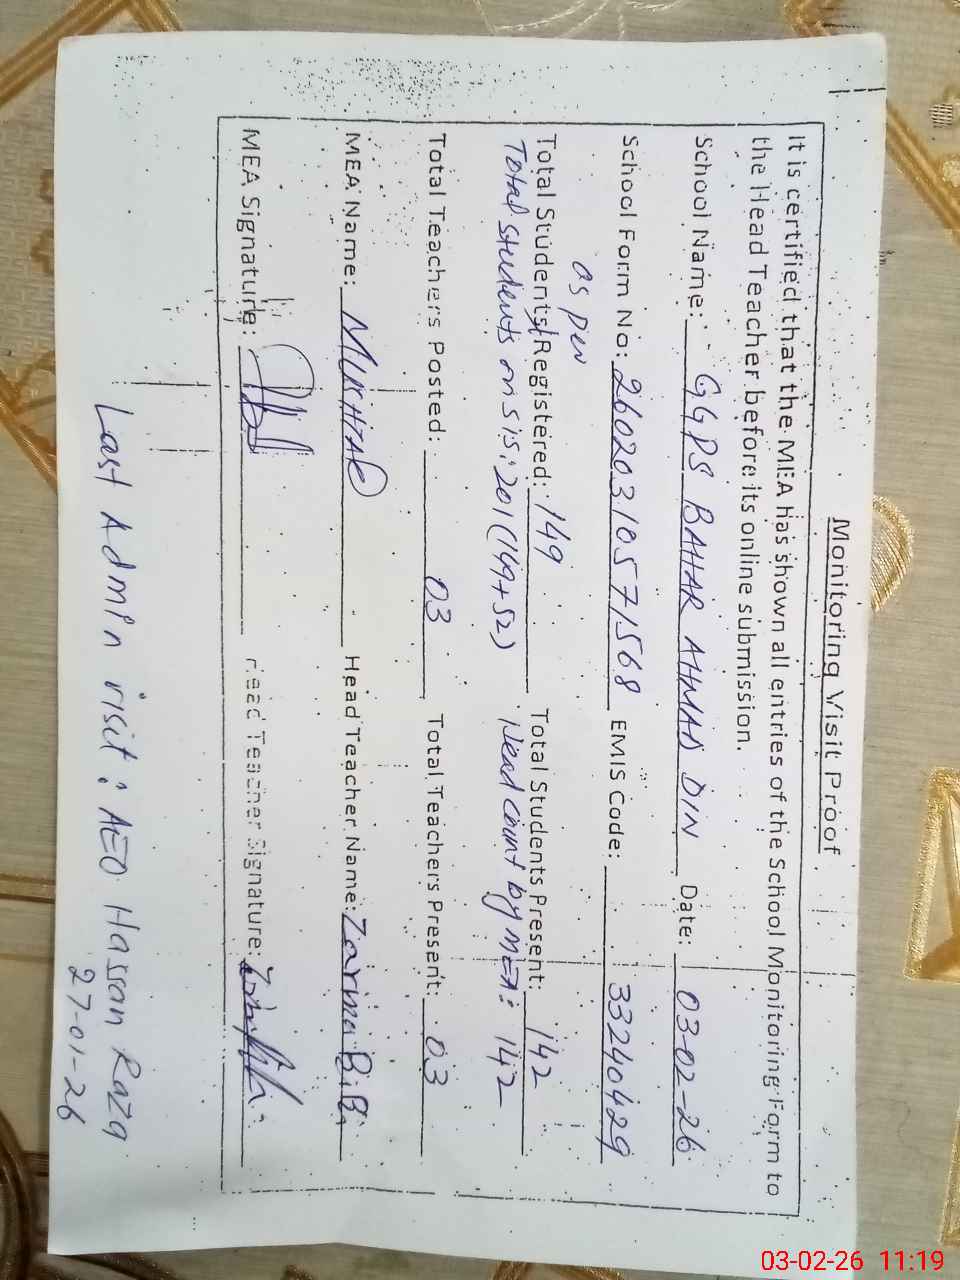 Monitoring Visit Proof
It is certified that the MEA has shown all entries of the School Monitoring Form to
the Head Teacher before its online submission.
School Name: GGPS BAHAR AHMAD DIN Date: 03-02-26
School Form No: 26020310571568 EMIS Code: 33240429
as per
Total Students Registered: 149 Total Students Present: 142
Total students on sis: 201 (149+52) Head count by MEA: 142
Total Teachers Posted: 03 Total Teachers Present: 03
MEA Name: MUSHTAQ Head Teacher Name: Zarina BiBi
MEA Signature: Head Teacher Signature:
Last Admin visit: AEO Hassan Raza
27-01-26
03-02-26 11:19